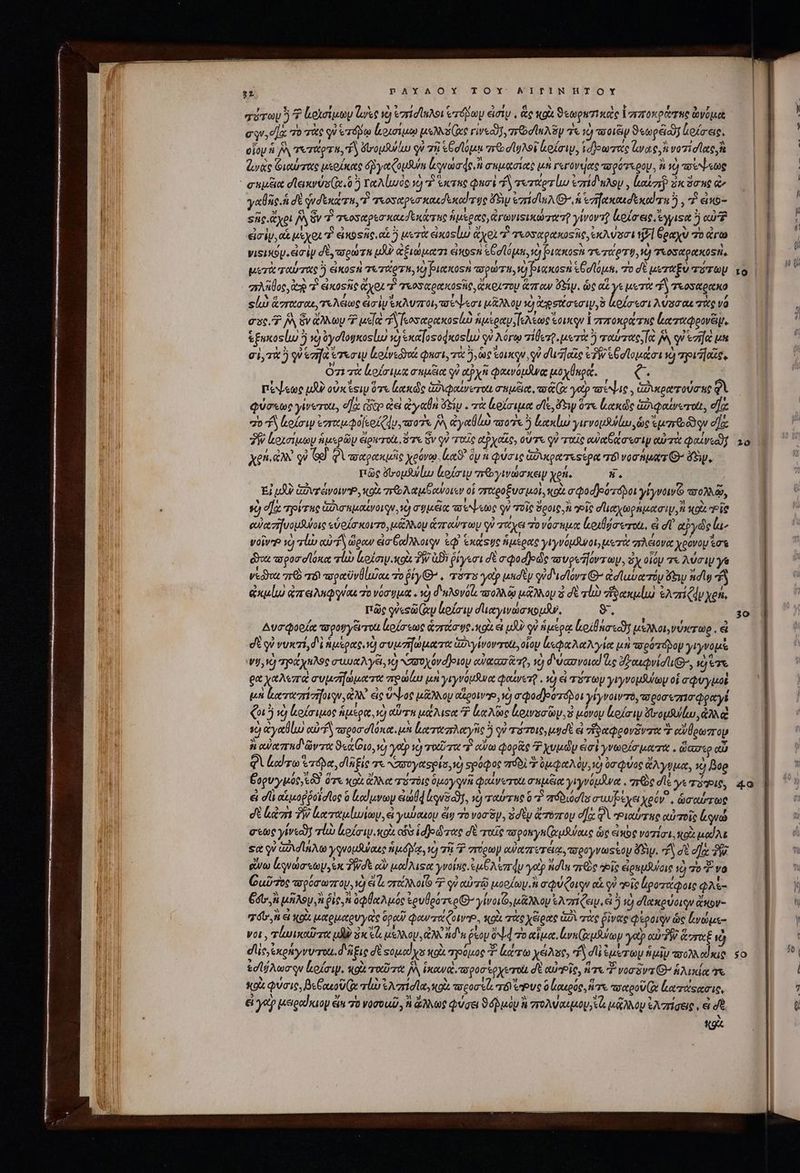 32 ΠΑΥΛΟΥ ΤΟΥ ΑΙΓΙΝΗΤΟΥ
τούτων δὲ τῶν κρισίμων ἡμερῶν
οἷον ἡ μὲν τετάρτη, τὴν γενομένην ἐν τῇ ἑβδόμῃ προδηλοῖ κρίσιν, ἱδρῶτάς τινας, ἢ νοτίδας, ἢ
σημεῖα δεικνῦσα. ὁ δὲ Γαλιηνὸς καὶ τῆς ἕκτης φησὶ τὴν τετάρτην ἐπίδηλον
γαθῆς. ἡ δὲ ἑνδεκάτη, τῆς τεσσαρεσκαιδεκάτης ἐστὶν ἐπίδηλος, ἡ ἑπτακαιδεκάτη δὲ, τῆς εἰκο-
στῆς. ἄχρι μὲν οὖν τῆς τεσσαρεσκαιδεκάτης ἡμέρας, ἀγωνιστικώταται γίνονται κρίσεις. ἔγγιστα δὲ αὐτῶν
εἰσὶν, αἱ μέχρι τῆς εἰκοστῆς. αἱ δὲ μετὰ εἰκοστὴν ἄχρι τῆς τεσσαρακοστῆς, ἐκλύουσι κατὰ βραχὺ τὸ ἀγω
νιστικόν. εἰσὶν δὲ, πρώτη μὲν ἀξιώματι εἰκοστὴ ἑβδόμη, καὶ τριακοστὴ τετάρτη, καὶ τεσσαρακοστή.
μετὰ ταύτας δὲ εἰκοστὴ τετάρτη, καὶ τριακοστὴ πρώτη, καὶ τριακοστὴ ἑβδόμη. τὸ δὲ μεταξὺ τούτων 10
πλῆθος, ἀπὸ τῆς εἰκοστῆς ἄχρι τῆς τεσσαρακοστῆς, ἄκριτον ἅπαν ἐστίν. ὡς αἵ γε μετὰ τὴν τεσσαρακο
στὴν ἅπασαι, τελέως εἰσὶν ἔκλυτοι, πέψεσι μᾶλλον καὶ ἀποστάσεσιν, ἢ κρίσεσι λύουσαι τὰς νό
σους. τῶν μὲν οὖν ἄλλων τῶν μετὰ τὴν τεσσαρακοστὴν ἡμερῶν, τελέως ἔοικεν Ἱπποκράτης καταφρονεῖν.
ἑξηκοστὴν δὲ καὶ ὀγδοηκοστὴν καὶ ἑκατοστοεικοστὴν ἐν λόγῳ τίθεται. μετὰ δὲ ταύτας, τὰ μὲν ἐν ἑπτὰ μη
σὶ, τὰ δὲ ἐν ἑπτὰ ἔτεσιν κρίνεσθαί φησι, τὰ δὲ, ὡς ἔοικεν, ἐν
Ὅτι τὰ κρίσιμα σημεῖα ἐν ἀρχῇ φαινόμενα μοχθηρά. ζ.
Πέψεως μὲν οὐκ ἔστιν ὅτε κακῶς ἐπιφαίνεται σημεῖα, πᾶσα γὰρ πέψις, ἐπικρατούσης τῆς
φύσεως γίνεται, διὰ τοῦτο ἀεὶ ἀγαθὴ ἐστίν. τὰ κρίσιμα δὲ, ἔστιν ὅτε κακῶς ἐπιφαίνεται, διὰ
τὸ τὴν κρίσιν ἐπαμφοτερίζειν, ποτὲ μὲν ἀγαθὴν ποτὲ δὲ κακὴν γινομένην, ὡς ἔμπροσθεν διὰ
τῶν κρισίμων ἡμερῶν εἴρηται. ὅτε οὖν ἐν ταῖς ἀρχαῖς, οὔτε ἐν ταῖς ἀναβάσεσιν αὐτὰ φαίνεσθαι 20
χρή, ἀλλ' ἐν τῷ τῆς παρακμῆς χρόνῳ, καθ' ὃν ἡ φύσις ἐπικρατεστέρα τοῦ νοσήματος ἐστίν.
Πῶς ἐσομένην κρίσιν προγινώσκειν χρή. η.
Εἰ μὲν ἐπιτείνοιντο, καὶ προλαμβάνοιεν οἱ παροξυσμοὶ, καὶ σφοδρότεροι γίγνοιντο πολλῷ,
καὶ διὰ τρίτης ἐπισημαίνοιεν, καὶ σημεῖα πέψεως ἐν τοῖς οὔροις, ἢ τοῖς διαχωρήμασιν, ἢ καὶ τοῖς
ἀναπτυομένοις εὑρίσκοιτο, μᾶλλον ἁπάντων ἐν τάχει τὸ νόσημα κριθήσεται. εἰ δ' ἀργῶς κι-
νοῖντο καὶ τὴν αὐτὴν ὥραν εἰσβάλλοιεν ἐφ' ἑκάστης ἡμέρας γιγνόμενοι, μετὰ πλείονα χρόνον ἔσε
σθαι προσδόκα τὴν κρίσιν. καὶ τῶν ἐπὶ ῥίγεσι δὲ σφοδρῶς πυρεττόντων, οὐχ οἷόν τε λύσιν γε
νέσθαι πρὸ τοῦ πραϋνθῆναι τὸ ῥῖγος. τούτου γὰρ μηδὲν ἐνδιδόντος ἀδύνατόν ἐστιν ἤδη τὴν
ἀκμὴν ἀπειληφέναι τὸ νόσημα. καὶ δηλονότι πολλῷ μᾶλλον οὐδὲ τὴν παρακμὴν ἐλπίζειν χρή.
Πῶς ἐνεστῶσαν κρίσιν διαγινώσκομεν. θ. 30
Δυσφορία προηγεῖται κρίσεως ἁπάσης. καὶ εἰ μὲν ἐν ἡμέρᾳ κριθήσεσθαι μέλλοι, νύκτωρ. εἰ
δὲ ἐν νυκτὶ, δι' ἡμέρας. καὶ συμπτώματα ἐπιγίνονται, οἷον κεφαλαλγία μὴ πρότερον γιγνομέ
νη, καὶ τράχηλος συναλγεῖ, καὶ ὑποχόνδριον ἀνασπᾶται, καὶ δύσπνοιαί τινες ἐξαιφνίδιοι, καὶ ἕτε
ρα χαλεπὰ συμπτώματα πρώην μὴ γιγνόμενα φαίνεται. καὶ εἰ τούτων γιγνομένων οἱ σφυγμοὶ
μὴ καταπίπτοιεν, ἀλλ' εἰς ὕψος μᾶλλον αἴροιντο, καὶ σφοδρότεροι γίγνοιντο, προσεπισφραγί
ζοι δὲ καὶ κρίσιμος ἡμέρα, καὶ αὕτη μάλιστα τῶν καλῶς κρινουσῶν, οὐ μόνον κρίσιν ἐσομένην, ἀλλὰ
καὶ ἀγαθὴν αὐτὴν προσδόκα. μὴ καταπλαγῇς δὲ ἐν τούτοις, μηδὲ εἰ παραφρονοῦντα τὸν ἄνθρωπον
ἢ ἀναπηδῶντα θεάσαιο, καὶ γὰρ καὶ ταῦτα τῆς ἄνω φορᾶς τῶν χυμῶν εἰσὶ γνωρίσματα. ὥσπερ αὖ
τῆς κάτω ἕτερα, δῆξίς τε ὑπογαστρίου, καὶ στρόφος περὶ τὸν ὀμφαλὸν, καὶ ὀσφύος ἄλγημα, καὶ βορ
βορυγμὸς, ἔσθ' ὅτε καὶ ἄλλα τούτοις ὁμογενῆ φαίνεται σημεῖα γιγνόμενα. πρὸς δέ γε τούτοις, 40
εἰ δι' αἱμορροΐδος ὁ κάμνων εἰώθει κενοῦσθαι, καὶ ταύτης ὁ τῆς περιόδου συντρέχει χρόνος. ὡσαύτως
δὲ κἀπὶ τῶν καταμηνίων, εἰ γύναιον εἴη τὸ νοσοῦν, οὐδὲν ἄτοπον διὰ τῆς τοιαύτης αὐτοῖς κενώ
σεως γίνεσθαι τὴν κρίσιν. καὶ
ἄνω κενώσεων, ἐκ τῶνδε ἂν μάλιστα γνοίης. ἐμβλέπειν γὰρ ἤδη πρὸς τοῖς εἰρημένοις καὶ τὸ τοῦ νο
σοῦντος πρόσωπον, καὶ εἴ τι πάλλοιτο τῶν ἐν αὐτῷ μορίων, ἢ σφύζοιεν αἱ ἐν τοῖς κροτάφοις φλέ-
βες, ἢ μῆλον, ἢ ῥὶς, ἢ ὀφθαλμὸς ἐρυθρότερος γίνοιτο, μᾶλλον ἐλπίζειν. εἰ δὲ καὶ δακρύοιεν ἄκον-
τες, ἢ εἰ καὶ μαρμαρυγὰς ὁρᾶν φαντάζοιντο, καὶ τὰς χεῖρας ἐπὶ τὰς ῥῖνας φέροιεν ὡς κνώμε-
νοι, τηνικαῦτα μὲν οὐκ ἔτι μέλλον, ἀλλ' ἤδη ῥέον ὄψει τὸ αἷμα. κνησαμένων γὰρ αὐτῶν ἅπαξ καὶ
δὶς, ἐκρήγνυται. δῆξις δὲ στομάχου καὶ τρόμος τοῦ κάτω χείλους, τὴν δι' ἐμέτων ἡμῖν πολλάκις 50
ἐδήλωσεν κρίσιν. καὶ ταῦτα μὲν ἱκανά. προσέρχεται δὲ αὐτοῖς, ἥτε τοῦ νοσοῦντος ἡλικία τε
καὶ φύσις, βεβαιοῦσα τὴν ἐλπίδα, καὶ προσέτι τοῦ ἔτους ὁ καιρὸς, ἥτε παροῦσα κατάστασις.
εἰ γὰρ μειράκιον εἴη τὸ νοσοῦν, ἢ ἄλλως φύσει θερμὸν ἢ πολύαιμον, ἔτι μᾶλλον ἐλπίσεις. εἰ δὲ
καὶ